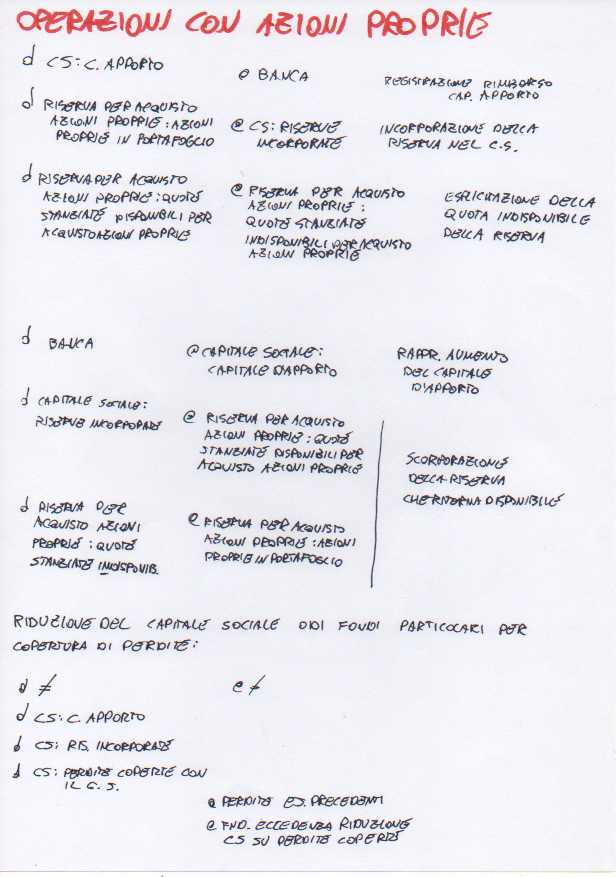 OPERAZIONI CON AZIONI PROPRIE
d CS: C. APPORTO
@ BANCA
REGISTRAZIONE RIMBORSO
CAP. APPORTO
d RISERVA PER ACQUISTO
AZIONI PROPRIE: AZIONI
PROPRIE IN PORTAFOGLIO
@ CS: RISERVE
INCORPORATE
INCORPORAZIONE DELLA
RISERVA NEL C.S.
d RISERVA PER ACQUISTO
AZIONI PROPRIE: QUOTE
STANZIATE DISPONIBILI PER
ACQUISTO AZIONI PROPRIE
@ RISERVA PER ACQUISTO
AZIONI PROPRIE:
QUOTE STANZIATE
INDISPONIBILI PER ACQUISTO
AZIONI PROPRIE
ESPLICITAZIONE DELLA
QUOTA INDISPONIBILE
DELLA RISERVA
d BANCA
@ CAPITALE SOCIALE:
CAPITALE D'APPORTO
RAPPR. AUMENTO
DEL CAPITALE
D'APPORTO
d CAPITALE SOCIALE:
RISERVE INCORPORATE
@ RISERVA PER ACQUISTO
AZIONI PROPRIE: QUOTE
STANZIATE DISPONIBILI PER
ACQUISTO AZIONI PROPRIE
SCORPORAZIONE
DELLA RISERVA
CHE RITORNA DISPONIBILE
d RISERVA PER
ACQUISTO AZIONI
PROPRIE: QUOTE
STANZIATE INDISPONIB.
@ RISERVA PER ACQUISTO
AZIONI PROPRIE: AZIONI
PROPRIE IN PORTAFOGLIO
RIDUZIONE DEL CAPITALE SOCIALE O DI FONDI PARTICOLARI PER
COPERTURA DI PERDITE:
d ≠
@ ≠
d CS: C. APPORTO
d CS: RIS. INCORPORATE
d CS: PERDITE COPERTE CON
IL C.S.
@ PERDITE ES. PRECEDENTI
@ FND. ECCEDENZA RIDUZIONE
CS SU PERDITE COPERTE